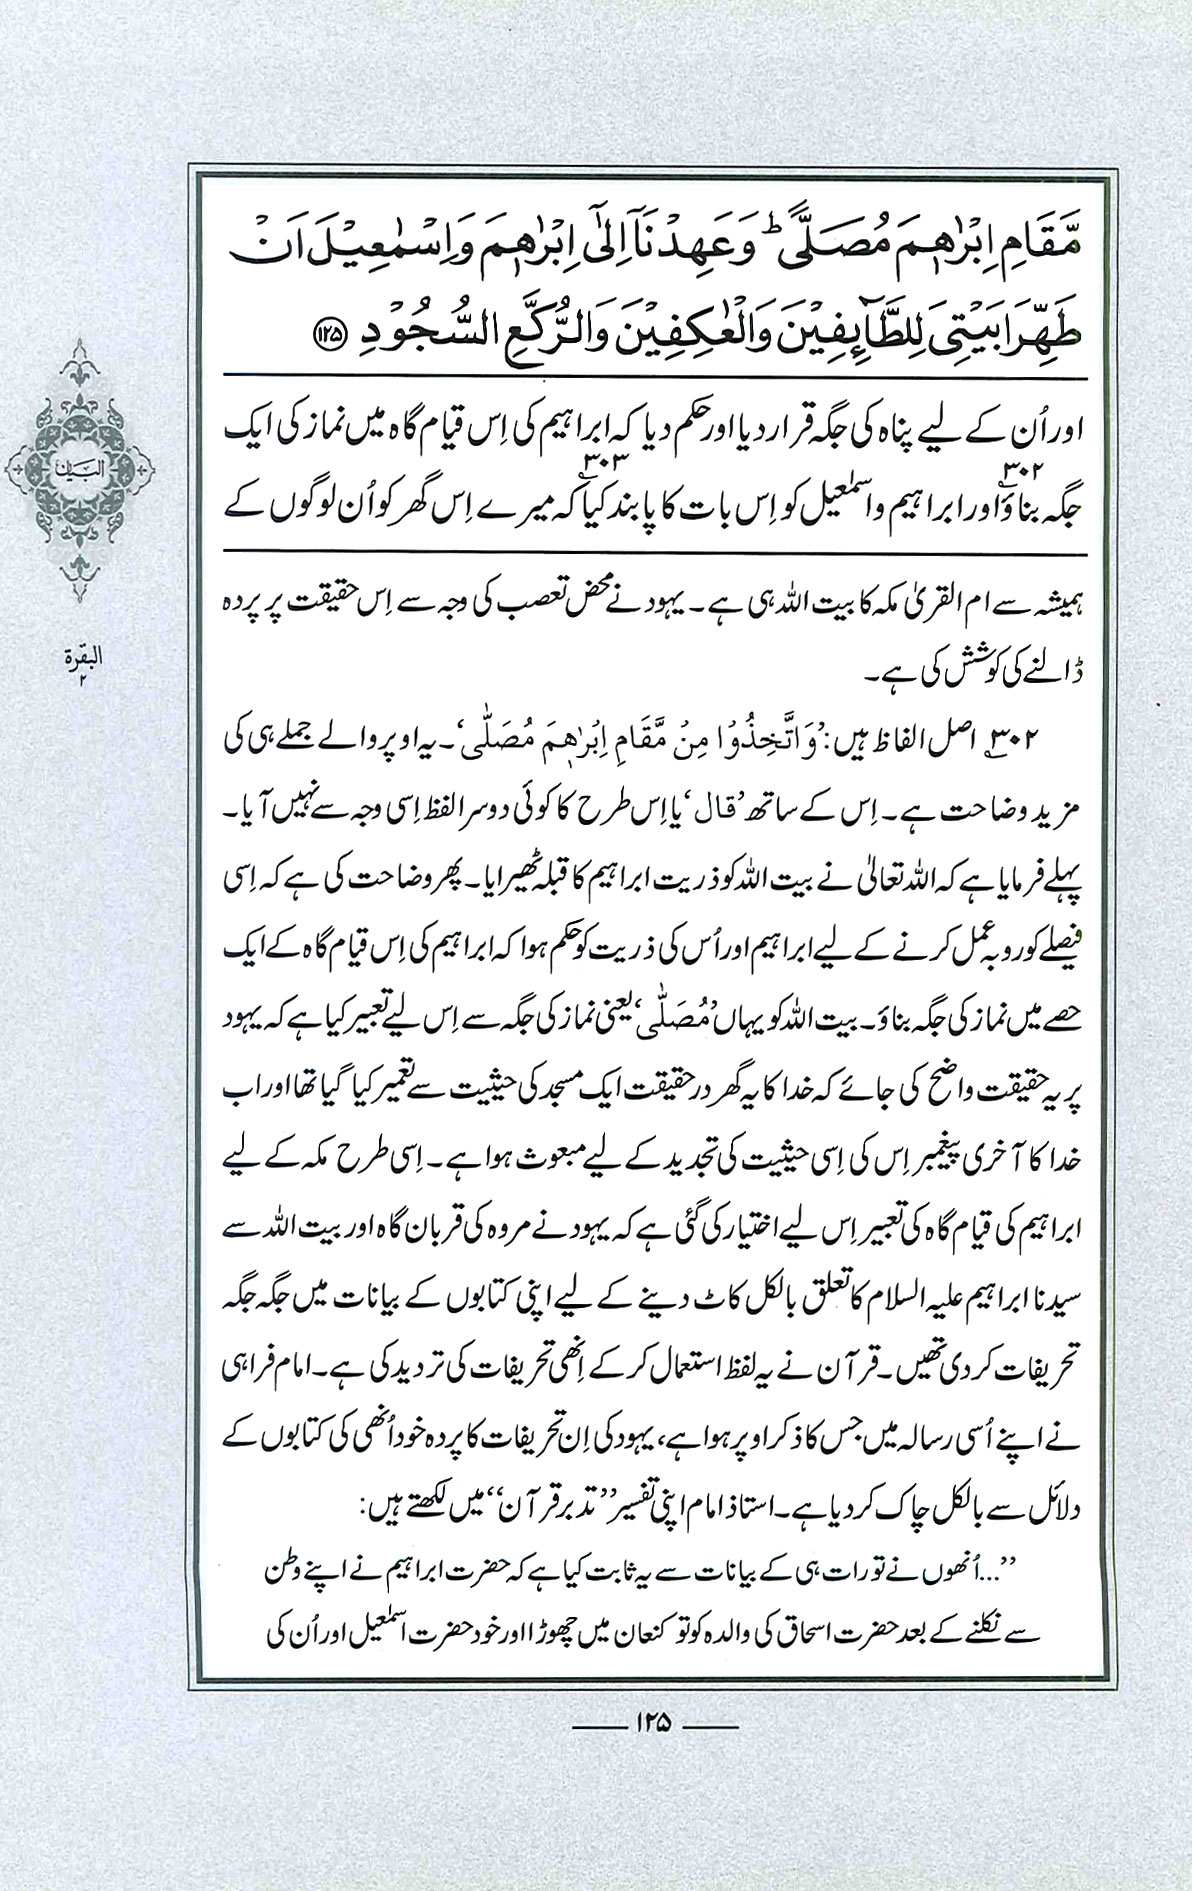 مَّقَامِ اِبْرٰهٖمَ مُصَلًّى ؕ وَعَهِدْنَاۤ اِلٰۤى اِبْرٰهٖمَ وَاِسْمٰعِيْلَ اَنْ
طَهِّرَا بَيْتِىَ لِلطَّآئِفِيْنَ وَالْعٰكِفِيْنَ وَالرُّكَّعِ السُّجُوْدِ ﴿۱۲۵﴾
اور اُن کے لیے پناہ کی جگہ قرار دیا اور حکم دیا کہ ابراہیم کی اِس قیام گاہ میں نماز کی ایک
جگہ بناؤ۳۰۲ اور ابراہیم و اسمٰعیل کو اِس بات کا پابند کیا۳۰۳ کہ میرے اِس گھر کو اُن لوگوں کے
البیان
البقرة
۲
ہمیشہ سے ام القریٰ مکہ کا بیت اللہ ہی ہے۔ یہود نے محض تعصب کی وجہ سے اِس حقیقت پر پردہ
ڈالنے کی کوشش کی ہے۔
۳۰۲ اصل الفاظ ہیں: ’وَاتَّخِذُوْا مِنْ مَّقَامِ اِبْرٰهٖمَ مُصَلّٰى‘۔ یہ اوپر والے جملے ہی کی
مزید وضاحت ہے۔ اِس کے ساتھ ’قال‘ یا اِس طرح کا کوئی دوسرا لفظ اِسی وجہ سے نہیں آیا۔
پہلے فرمایا ہے کہ اللہ تعالیٰ نے بیت اللہ کو ذریت ابراہیم کا قبلہ ٹھیرایا۔ پھر وضاحت کی ہے کہ اِسی
فیصلے کو رو بہ عمل کرنے کے لیے ابراہیم اور اُس کی ذریت کو حکم ہوا کہ ابراہیم کی اِس قیام گاہ کے ایک
حصے میں نماز کی جگہ بناؤ۔ بیت اللہ کو یہاں ’مُصَلّٰى‘ یعنی نماز کی جگہ سے اِس لیے تعبیر کیا ہے کہ یہود
پر یہ حقیقت واضح کی جائے کہ خدا کا یہ گھر درحقیقت ایک مسجد کی حیثیت سے تعمیر کیا گیا تھا اور اب
خدا کا آخری پیغمبر اِس کی اِسی حیثیت کی تجدید کے لیے مبعوث ہوا ہے۔ اِسی طرح مکہ کے لیے
ابراہیم کی قیام گاہ کی تعبیر اِس لیے اختیار کی گئی ہے کہ یہود نے مروہ کی قربان گاہ اور بیت اللہ سے
سیدنا ابراہیم علیہ السلام کا تعلق بالکل کاٹ دینے کے لیے اپنی کتابوں کے بیانات میں جگہ جگہ
تحریفات کر دی تھیں۔ قرآن نے یہ لفظ استعمال کر کے اِنھی تحریفات کی تردید کی ہے۔ امام فراہی
نے اپنے اُسی رسالہ میں جس کا ذکر اوپر ہوا ہے، یہود کی اِن تحریفات کا پردہ خود اُنھی کی کتابوں کے
دلائل سے بالکل چاک کر دیا ہے۔ استاذ امام اپنی تفسیر ’’تدبر قرآن‘‘ میں لکھتے ہیں:
’’...اُنھوں نے تورات ہی کے بیانات سے یہ ثابت کیا ہے کہ حضرت ابراہیم نے اپنے وطن
سے نکلنے کے بعد حضرت اسحاق کی والدہ کو تو کنعان میں چھوڑا اور خود حضرت اسمٰعیل اور اُن کی
۱۲۵